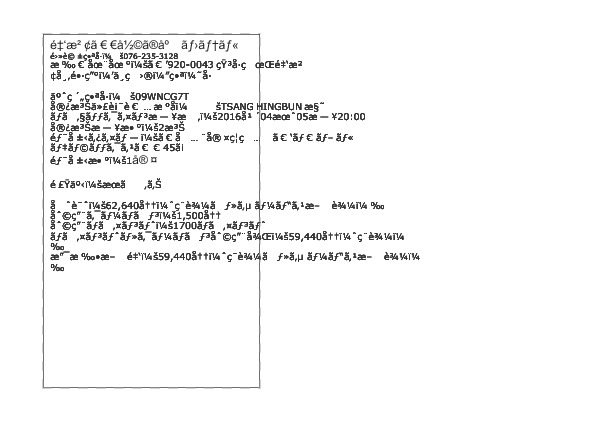 é‡'æ²¢ã€€å½©ã®åº­ãƒ›ãƒ†ãƒ«
é›»è©±ç•ªå·ï¼š076-235-3128
æ‰€åœ¨åœ°ï¼šã€'920-0043 çŸ³å·çœŒé‡'æ²
¢å¸‚é•·ç"ºï¼'ä¸ç›®ï¼"ç•ªï¼˜å·
äºˆç´„ç•ªå·ï¼š09WNCG7T
å®¿æ³Šä»£è¡¨è€…æ°åï¼šTSANG HINGBUN æ§˜
ãƒã‚§ãƒƒã‚¯ã‚¤ãƒ³æ—¥æ™‚ï¼š2016å¹´04æœˆ05æ—¥20:00
å®¿æ³Šæ—¥æ•°ï¼š2æ³Š
éƒ¨å±‹ã‚¿ã‚¤ãƒ—ï¼šã€å…¨å®¤ç¦ç…™ã€'ãƒ€ãƒ–ãƒ«
ãƒ‡ãƒ©ãƒƒã‚¯ã‚¹ã€€45ã¡
éƒ¨å±‹æ•°ï¼š1å®¤
é£Ÿäº‹ï¼šæœã‚ã‚Š
åˆè¨ˆï¼š62,640å††ï¼ˆç¨Žè¾¼ã¿ãƒ»ã‚µãƒ¼ãƒ"ã‚¹æ–™è¾¼ï¼‰
åˆ©ç"¨ã‚¯ãƒ¼ãƒãƒ³ï¼š1,500å††
åˆ©ç"¨ãƒã‚¤ãƒ³ãƒˆï¼š1700ãƒã‚¤ãƒ³ãƒˆ
ãƒã‚¤ãƒ³ãƒˆãƒ»ã‚¯ãƒ¼ãƒãƒ³åˆ©ç"¨å¾Œï¼š59,440å††ï¼ˆç¨Žè¾¼ï¼
‰
æ"¯æ‰•æ–™é‡'ï¼š59,440å††ï¼ˆç¨Žè¾¼ã¿ãƒ»ã‚µãƒ¼ãƒ"ã‚¹æ–™è¾¼ï¼
‰